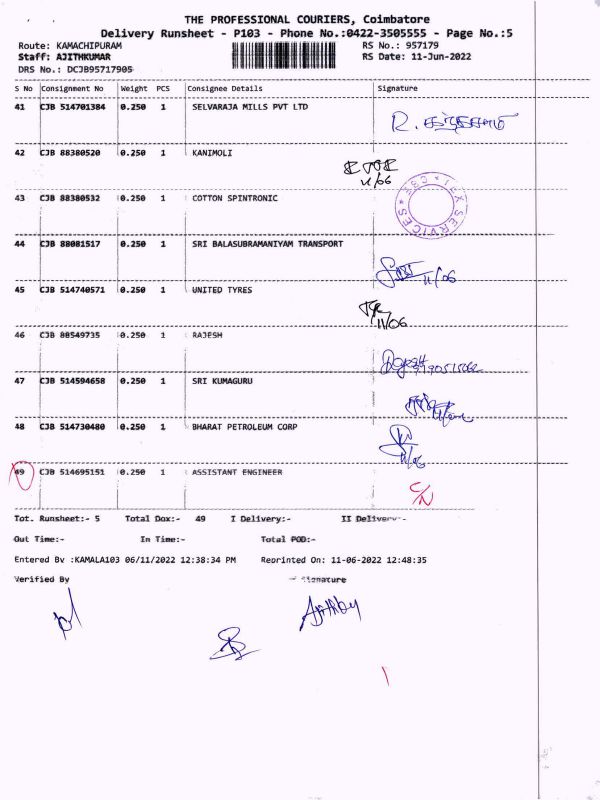 THE PROFESSIONAL COURIERS, Coimbatore
Delivery Runsheet - P103 - Phone No.:0422-3505555 - Page No.:5
Route: KAMACHIPURAM RS No.: 957179
Staff: AJITHKUMAR RS Date: 11-Jun-2022
DRS No.: DCJB95717905
S No Consignment No Weight PCS Consignee Details Signature
41 CJB 514701384 0.250 1 SELVARAJA MILLS PVT LTD
42 CJB 88380520 0.250 1 KANIMOLI
11/06
43 CJB 88380532 0.250 1 COTTON SPINTRONIC
TEX SERVICES
44 CJB 88081517 0.250 1 SRI BALASUBRAMANIYAM TRANSPORT
11/06
45 CJB 514740571 0.250 1 UNITED TYRES
11/06
46 CJB 88549735 0.250 1 RAJESH
47 CJB 514594658 0.250 1 SRI KUMAGURU
48 CJB 514730480 0.250 1 BHARAT PETROLEUM CORP
11/06
49 CJB 514695151 0.250 1 ASSISTANT ENGINEER
C/N
Tot. Runsheet:- 5 Total Dox:- 49 I Delivery:- II Delivery:-
Out Time:- In Time:- Total POD:-
Entered By :KAMALA103 06/11/2022 12:38:34 PM Reprinted On: 11-06-2022 12:48:35
Verified By Signature